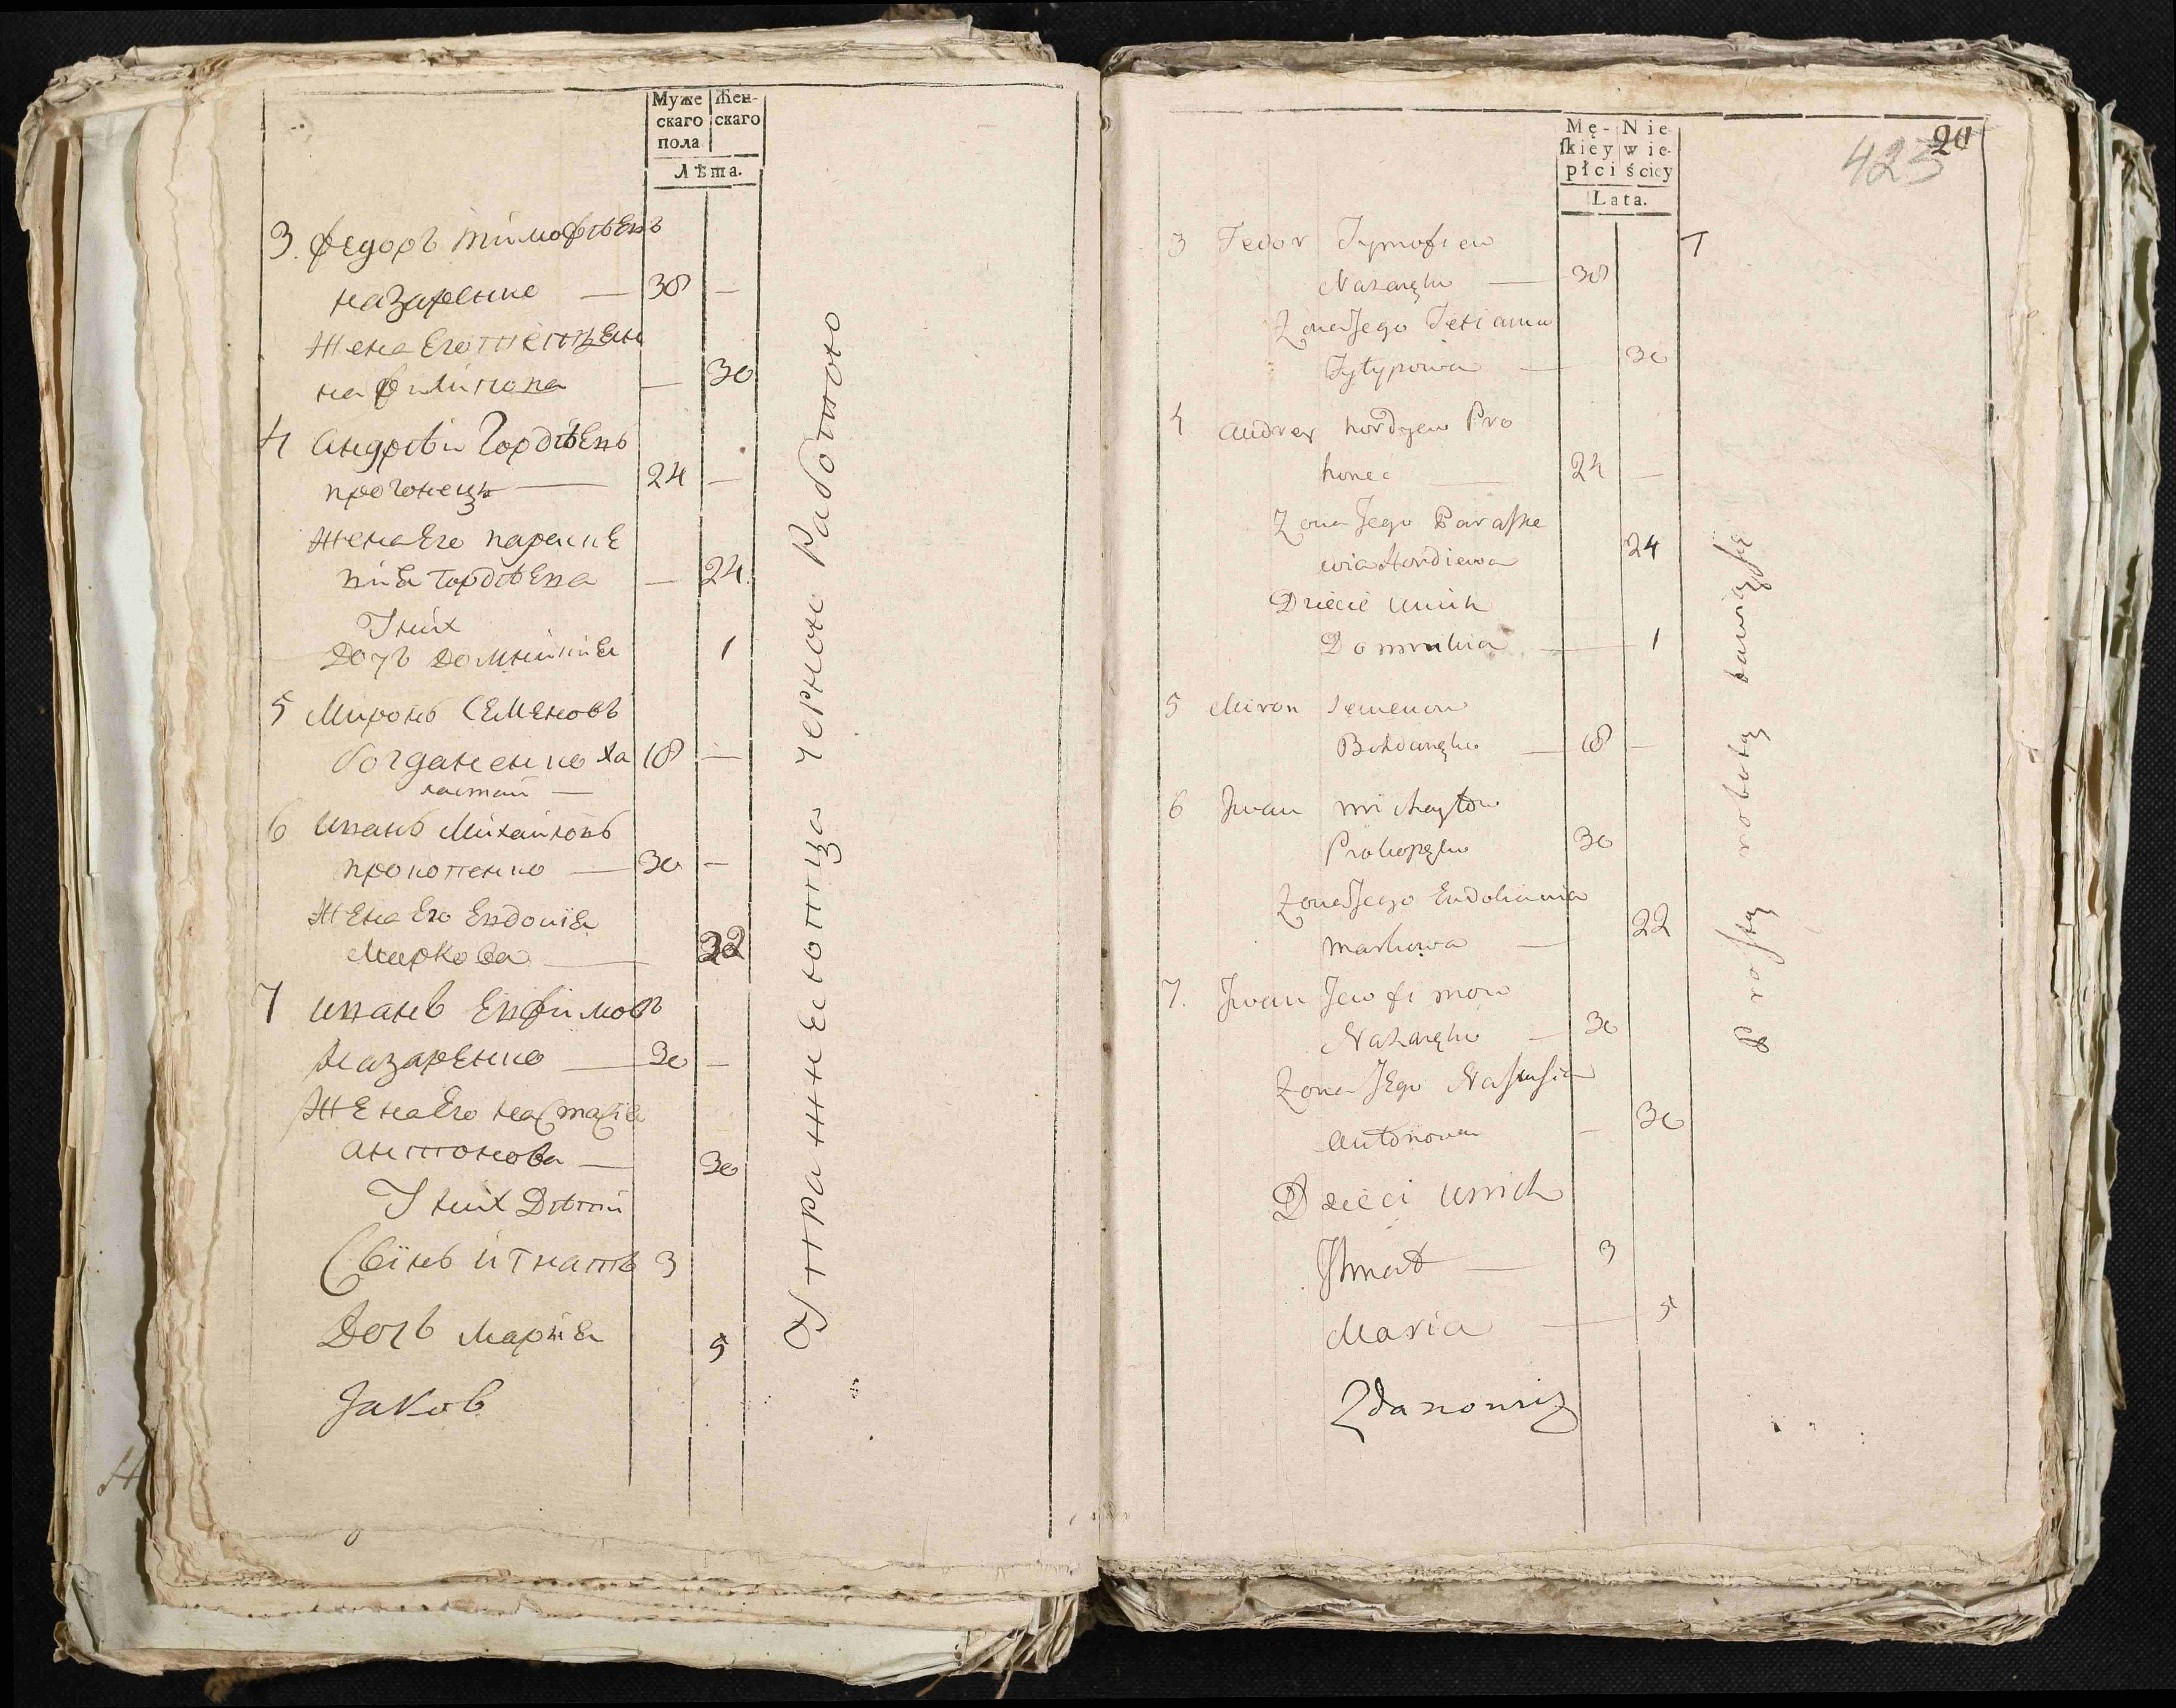 Муже
скаго
пола
Жен-
скаго
Лѣта.
3. Федоръ Тимофѣевъ
Назаренко — 38 —
Жена Его Тетяя
на Филипова — 30
4 Андрѣй Гордѣевъ
Прогонецъ — 24 —
Жена Его Параске
вия Гордѣева — 24
У них
Дочъ Домникия 1
5 Миронъ Семеновъ
Богданенко Хо 18 —
лостий —
6 Иванъ Михайловъ
Прокопенко — 30 —
Жена Его Евдокия
Маркова — 22
7 Иванъ Евфимовъ
Назаренко — 30 —
Жена Его Настасия
Антонова — 30
У них Дѣти
Синъ Игнатъ 3
Дочъ Мария 5
Jakob
Упражняютца черною работою
Mę-
skiey
płci
Nie
wie-
ściey
Lata.
20
423
3 Fedor Tymofiew
Nazaręko — 38
Zona Jego Tetianna
Fylypowa — 30
4 Andrey Hordyew Pro
honec — 24 —
Zona Jego Paraske
wia Hordiewa 24
Dziecie unich
Domnikia — 1
5 Miron Semenow
Bohdanęko — 18 —
6 Jwan Michayłow
Prokopęko 30
Zona Jego Eudokimia
Markowa — 22
7. Jwan Jewfimow
Nazaręko — 30
Zona JEgo Nastasia
Antonowa — 30
Dzieci unich
Jhnat — 3
Maria — 5
Zdanowicz
Prostą robotą bawią się